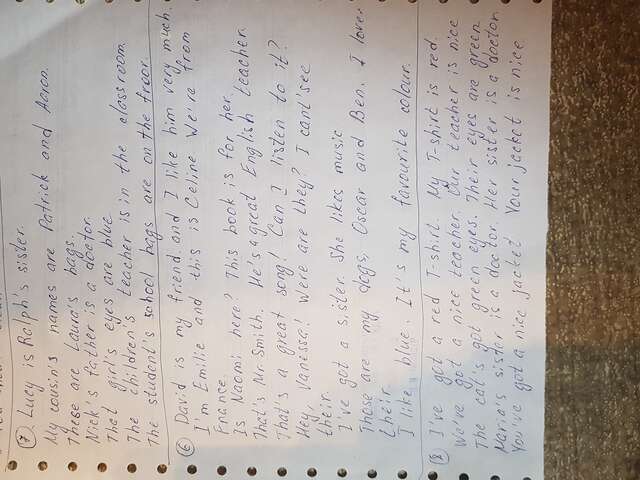 7. Lucy is Ralph's sister.
My cousin's names are Patrick and Aaron.
These are Laura's bags.
Nick's father is a doctor.
That girl's eyes are blue
The children's teacher is in the classroom.
The student's school bags are on the froor.
6 David is my friend and I like him very much.
I'm Emilie and this is Celine We're from
France.
Is Naomi here? This book is for her.
That's Mr. Smith. He's a great English teacher.
That's a great song! Can I listen to it?
Hey, Vanessa! Were are they? I cant'see
their.
I've got a sister. She likes music
Those are my dogs, Oscar and Ben. I love
their
I like blue. It's my favourite colour.
8 I've got a red T-shirt. My T-shirt is red.
We've got a nice teacher. Our teacher is nice
The cat's got green eyes. Their eyes are green
Maria's sister is a doctor. Her sister is a doctor.
You've got a nice jacket Your jacket is nice